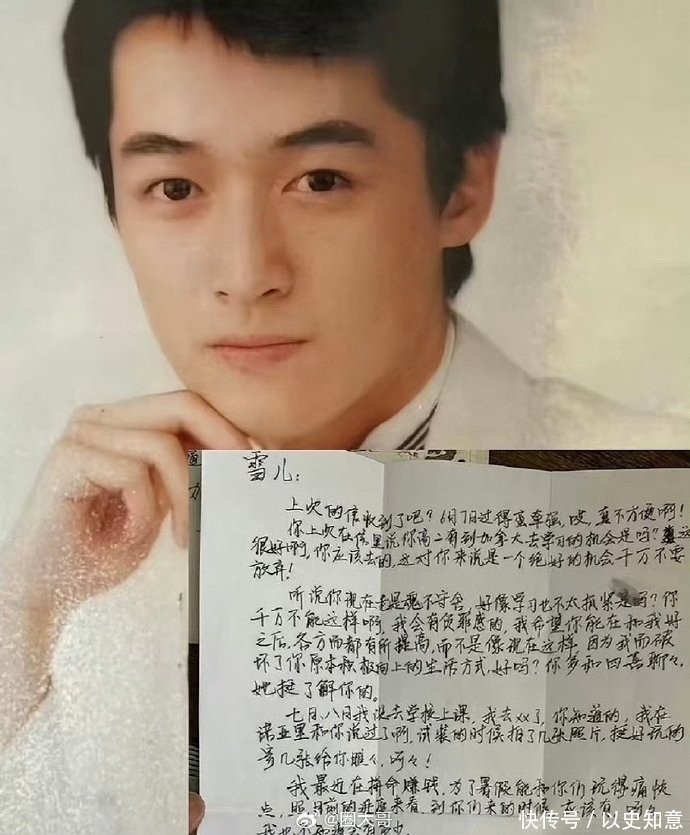 雪儿：
上次的信收到了吧？6月7日过得蛮牵强，哎，真不方便啊！
你上次在信里说你高二有到加拿大去学习的机会是吗？这
很好啊，你应该去的，这对你来说是一个绝好的机会千万不要
放弃！
听说你现在老是魂不守舍，好像学习也不太抓紧是吗？你
千万不能这样啊，我会有负罪感的，我希望你能在和我好
之后，各方面都有所提高，而不是像现在这样，因为我而破
坏了你原本积极向上的生活方式，好吗？你多和四喜聊々，
她挺了解你的。
七月、八月我没去学校上课，我去xx了，你知道的，我在
诺亚里和你说过了啊，试装的时候拍了几张照片，挺好玩的
寄几张给你瞧々，呵々！
我最近在拼命赚钱，为了暑假能和你们玩得痛快
点，照目前的进度来看，到你们来的时候，应该有
@圈大哥
快传号／以史知意